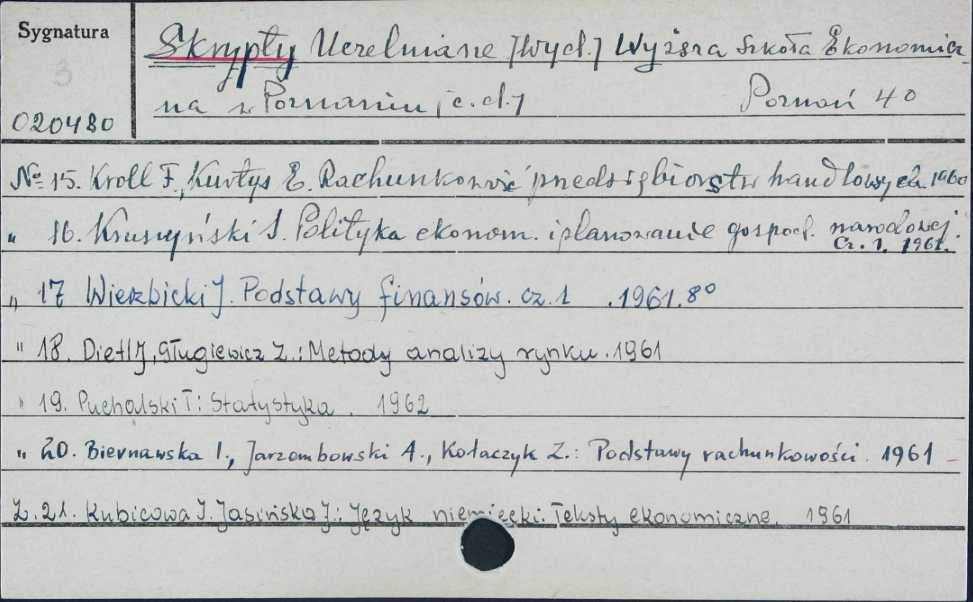 Sygnatura
3
020480
Skrypty Uczelniane [Wyd.] Wyższa Szkoła Ekonomicz
na w Poznaniu [c.d.] Poznań 4 0
№ 15. Kroll F., Kurtys E. Rachunkowość przedsiębiorstw handlowych 1960
" 16. Kruszyński S. Polityka ekonom. i planowanie gospod. narodowej.
Cz. 1. 1961.
" 17 Wierzbicki J. Podstawy finansów. cz. 1 . 1961. 8º
" 18. Dietl J, Gługiewicz Z.: Metody analizy rynku. 1961
" 19. Puchalski T: Statystyka . 1962
" 20. Biernawska I., Jarzombowski A., Kołaczyk Z.: Podstawy rachunkowości. 1961
Z. 21. Kubicowa I. Jasińska J.: Język niemiecki. Teksty ekonomiczne. 1961